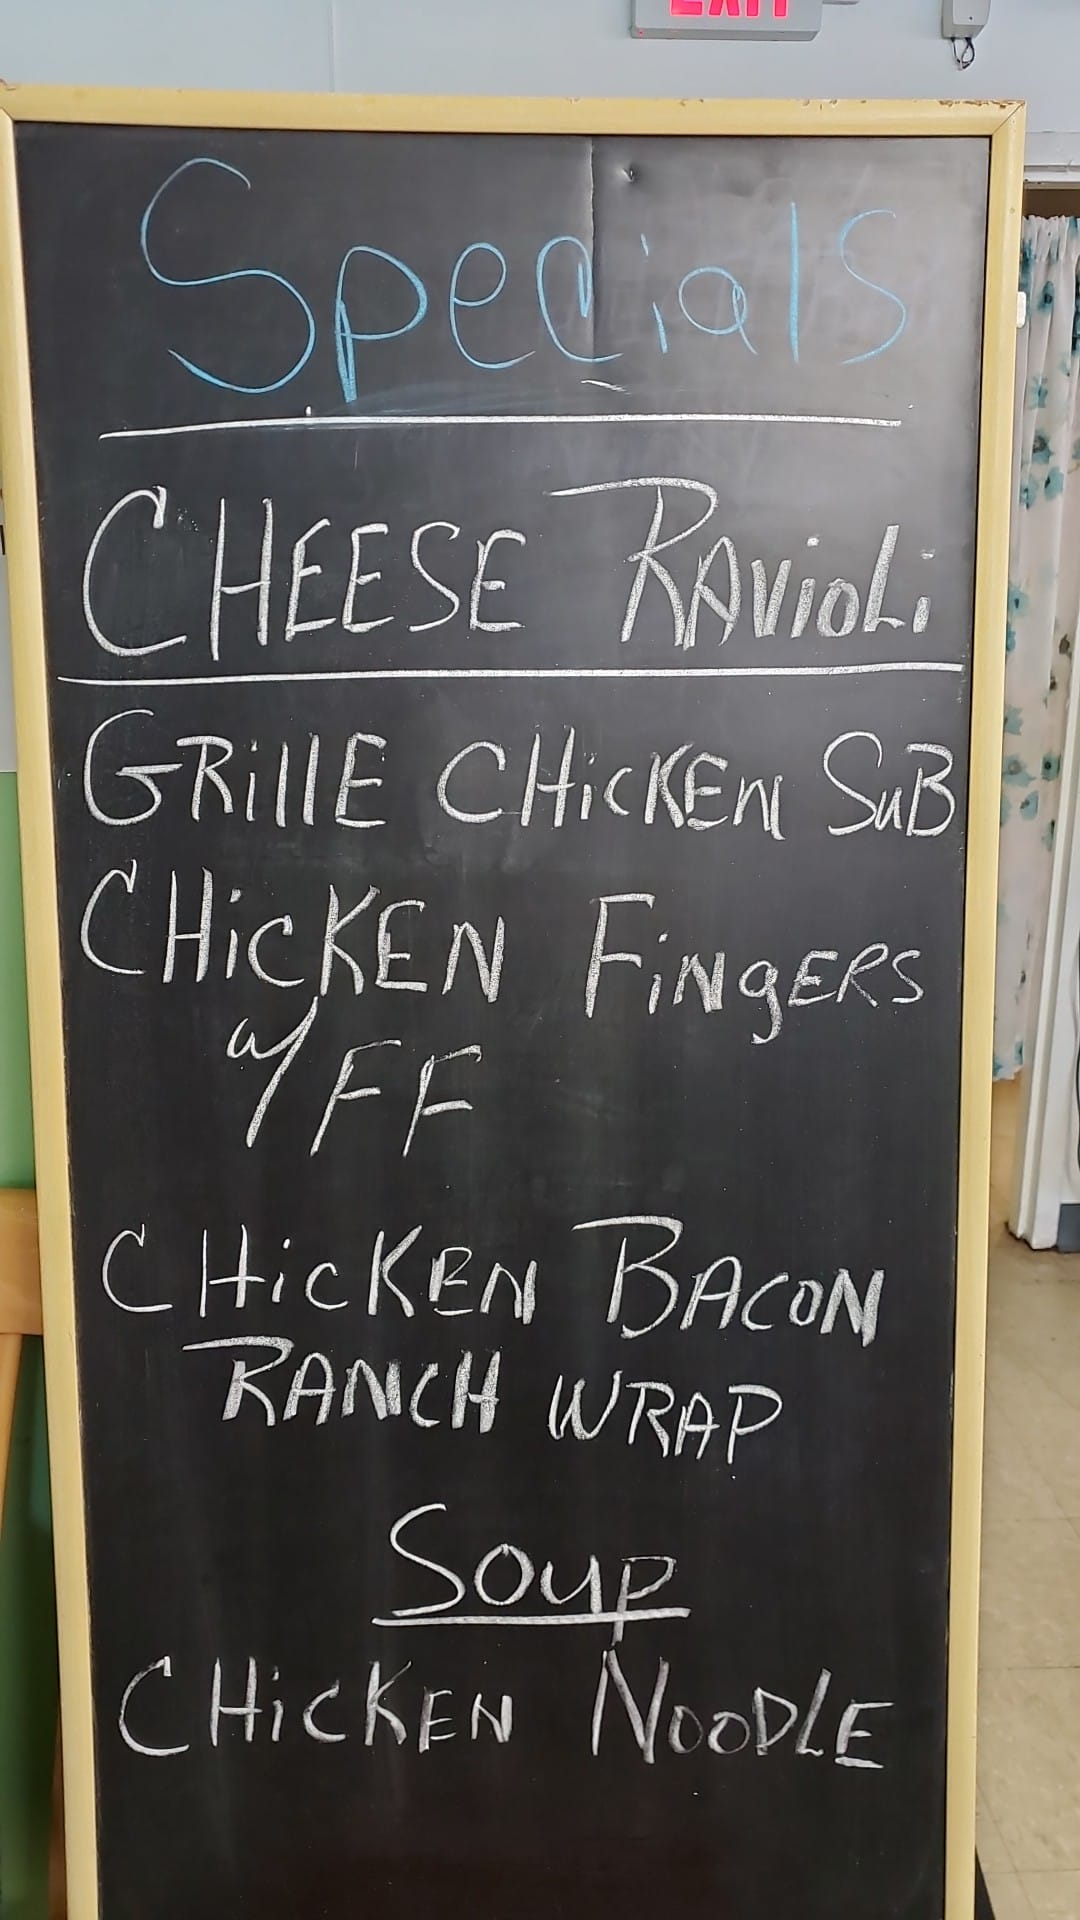 EXIT
Specials
CHEESE RAVioLi
GRillE CHicKEN SuB
CHicKEN FiNgERS
w/ FF
CHicKEN BACON
RANCH WRAP
Soup
CHicKEN NOODLE